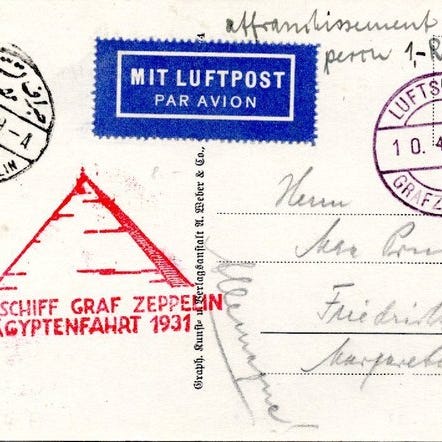 affranchissement
perçu 1,-R
MIT LUFTPOST
PAR AVION
LUFTSC
10.4
GRAF Z
SCHIFF GRAF ZEPPELIN
ÄGYPTENFAHRT 1931
Graph. Kunst- u. Verlagsanstalt A. Weber & Co.,
Allemagne
Herrn
Max
Friedrich
Margaret